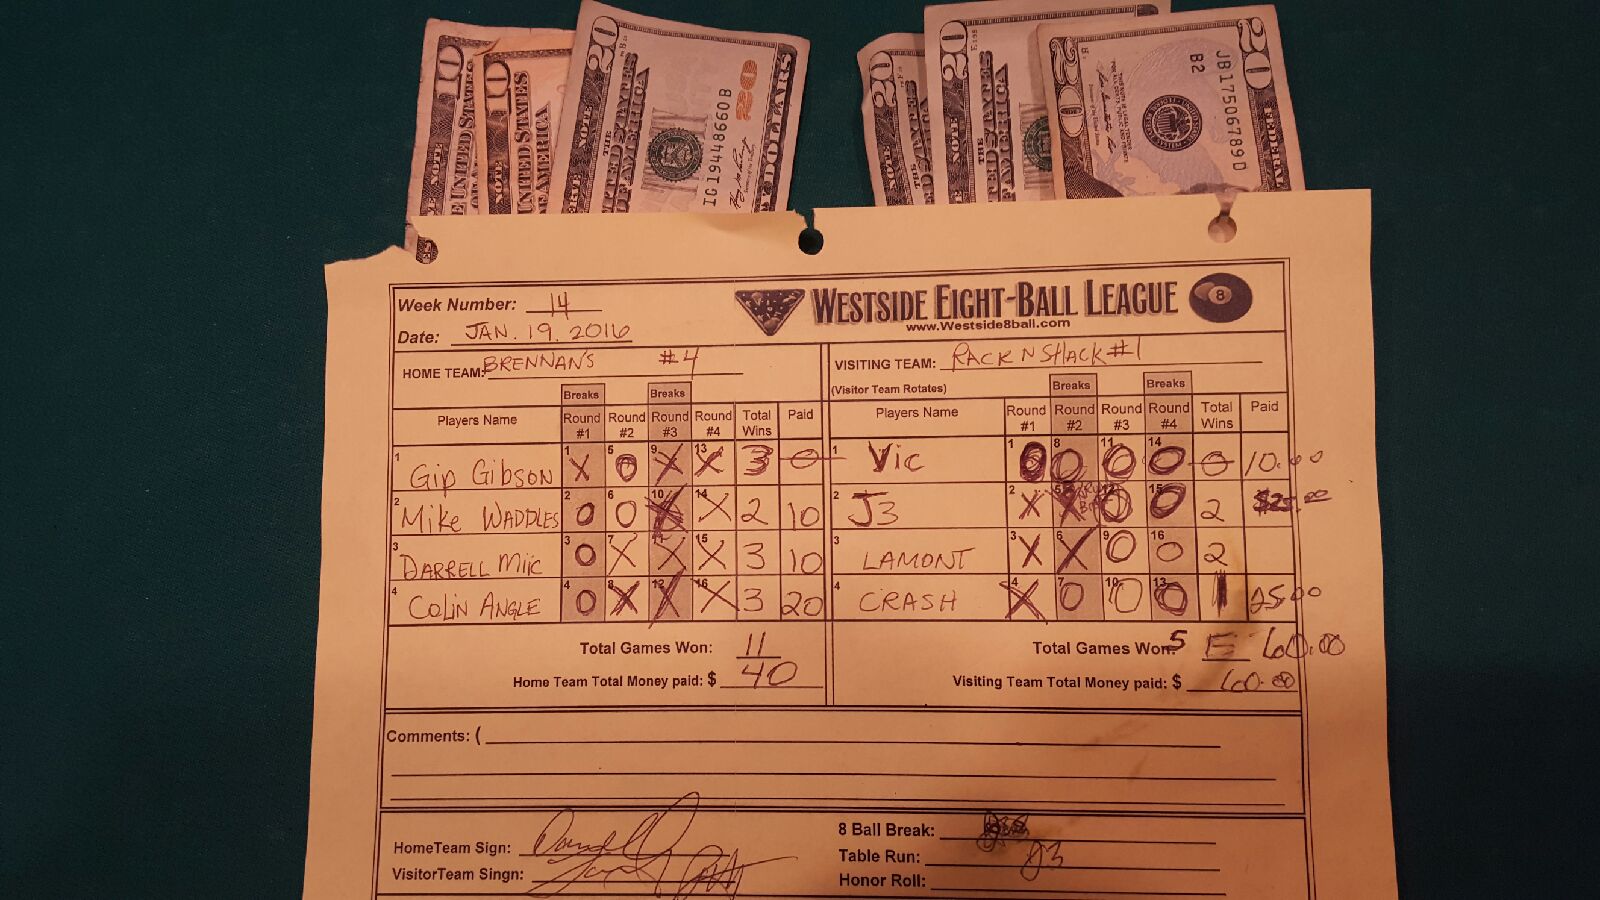 10 10 20 20 20 20
NOTE THE UNITED STATES OF AMERICA
UNITED STATES OF AMERICA
THE UNITED STATES OF AMERICA
IG19448660B
20
DOLLARS
JB17506789D
B2
FEDERAL
Week Number: 14
Date: JAN. 19. 2016
WESTSIDE EIGHT-BALL LEAGUE 8
www.Westside8ball.com
HOME TEAM: BRENNAN'S #4
VISITING TEAM: RACK N SHACK #1
(Visitor Team Rotates)
Breaks Breaks Breaks Breaks
Players Name Round #1 Round #2 Round #3 Round #4 Total Wins Paid
Players Name Round #1 Round #2 Round #3 Round #4 Total Wins Paid
1 Gip Gibson 1 X 5 O 9 X 13 X 3 0
1 Vic 1 O 8 O 11 O 14 O 0 10.00
2 Mike WADDLES 2 O 6 O 10 X 14 X 2 10
2 J3 2 X 5 X 12 O 15 O 2 $25.00
3 DARRELL 3 O 7 X 11 X 15 X 3 10
3 LAMONT 3 X 6 X 9 O 16 O 2
4 COLIN ANGLE 4 O 8 X 12 X 16 X 3 20
4 CRASH 4 X 7 O 10 O 13 O 1 25.00
Total Games Won: 11
Total Games Won: 5 60.00
Home Team Total Money paid: $ 40
Visiting Team Total Money paid: $ 60.00
Comments: (
HomeTeam Sign:
VisitorTeam Singn:
8 Ball Break:
Table Run: J3
Honor Roll: